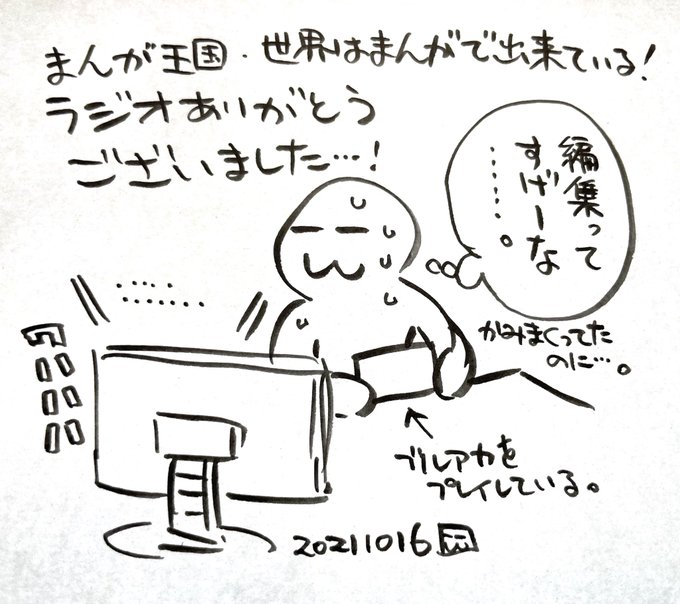 まんが王国・世界はまんがで出来ている!
ラジオありがとう
ございました…!
編集って
すげーな
………。
かみまくってた
のに…。
ブルアカを
プレイしている。
20211016